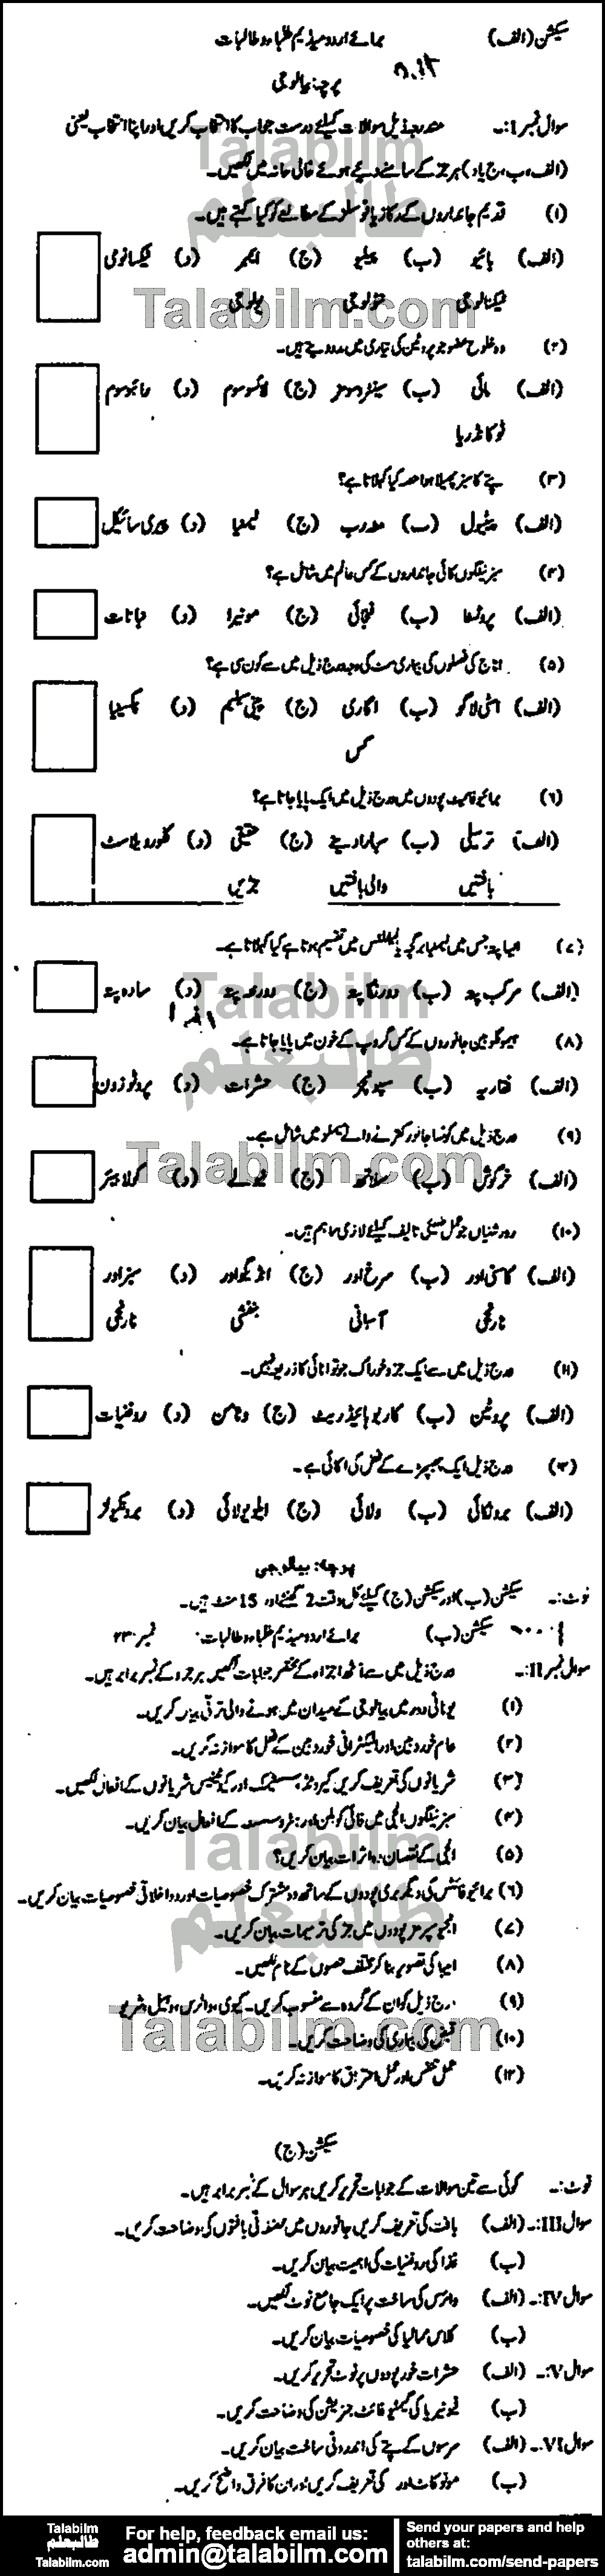 سیکشن (الف) برائے اردو میڈیم طلباء و طالبات
پرچہ بیالوجی
سوال نمبر I:۔ مندرجہ ذیل سوالات کیلئے درست جواب کا انتخاب کریں اور اپنا انتخاب یعنی
(الف، ب، ج یا د) ہر جز کے سامنے دیے ہوئے خالی خانہ میں لکھیں۔
(۱) قدیم جانداروں کے رکازیا فوسلز کے مطالعے کو کیا کہتے ہیں۔
(الف) بائیو (ب) پیلیو (ج) (د) ٹیکسانومی
ٹیکنالوجی
(۲) وہ خلوی عضو جو پروٹین کی تیاری میں مدد دیتے ہیں۔
(الف) مائی (ب) سینٹروسومز (ج) لائسوسوم (د) رائبوسوم
ٹوکانڈریا
(۳) پتے کا سبز پھیلا ہوا حصہ کیا کہلاتا ہے؟
(الف) پیٹیول (ب) (ج) لیمینا (د) پیری سائیکل
(۴) سبز نیلگوں کائی جانداروں کے کس عالم میں شامل ہے؟
(الف) پروٹسٹا (ب) فنجائی (ج) مونیرا (د) نباتات
(۵) اناج کی فصلوں کی بیماری سمٹ کی وجہ درج ذیل میں سے کون سی ہے؟
(الف) اسٹی لاگو (ب) اگاری (ج) پینی سیلیم (د) پکسینیا
کس
(۶) برائیوفائیٹ پودوں میں درج ذیل میں ایک پایا جاتا ہے؟
(الف) ترسیلی (ب) سہارا دینے (ج) حقیقی (د) کلوروپلاسٹ
بافتیں والی بافتیں جڑیں
(۷) ایسا پتہ جس میں لیمینا برگچہ یا لیفلٹس میں تقسیم ہوتا ہے کیا کہلاتا ہے۔
(الف) مرکب پتہ (ب) دورنگا پتہ (ج) دورخہ پتہ (د) سادہ پتہ
(۸) ہیموگلوبین جانوروں کے کس گروپ کے خون میں پایا جاتا ہے۔
(الف) فقاریہ (ب) سپونجز (ج) حشرات (د) پروٹوزون
(۹) درج ذیل میں کونسا جانور کترنے والے میملز میں شامل ہے۔
(الف) خرگوش (ب) (ج) نیولے (د) گولا بیئر
(۱۰) روشنیاں جو عمل ضیائی تالیف کیلئے لازمی و اہم ہیں۔
(الف) کاسنی اور (ب) سرخ اور (ج) انڈیگو اور (د) سبز اور
نارنجی آسمانی بنفشی نارنجی
(۱۱) درج ذیل میں سے ایک جزو خوراک جو توانائی کا ذریعہ نہیں۔
(الف) پروٹین (ب) کاربوہائیڈریٹ (ج) وٹامن (د) روغنیات
(۱۲) درج ذیل ایک پھیپھڑے کے فعل کی اکائی ہے۔
(الف) برونکائی (ب) ولائی (ج) ایلویولائی (د) برونکیولز
پرچہ: بیالوجی
نوٹ:۔ سیکشن (ب) اور سیکشن (ج) کیلئے کل وقت 2 گھنٹے اور 15 منٹ ہیں۔
سیکشن (ب) برائے اردو میڈیم طلباء و طالبات۔
سوال نمبر II:۔ درج ذیل میں سے آٹھ اجزاء کے مختصر جوابات لکھیں ہر جزو کے نمبر برابر ہیں۔
(۱) یونانی دور میں بیالوجی کے میدان میں ہونے والی ترقی بیان کریں۔
(۲) عام خوردبین اور الیکٹرانی خوردبین کے فعل کا موازنہ کریں۔
(۳) شریانوں کی تعریف کریں کیروٹڈ، سسٹمک اور شریانوں کے افعال لکھیں۔
(۴) سبز نیلگوں الجی میں کے افعال بیان کریں۔
(۵) الجی کے نقصان دہ اثرات بیان کریں؟
(۶) برائیوفائٹس کی دیگر بری پودوں کے ساتھ دو مشترک خصوصیات اور دو اختلافی خصوصیات بیان کریں۔
(۷) انجیوسپرمز پودوں میں جڑ کی ترمیمات بیان کریں۔
(۸) امیبا کی تصویر بنا کر مختلف حصوں کے نام لکھیں۔
(۹) درج ذیل کو ان کے گروہ سے منسوب کریں۔ کیوی، والرس، وہیل، شریو
(۱۰) قبض کی بیماری کی وضاحت کریں۔
(۱۲) عمل تنفس اور عمل احتراق کا موازنہ کریں۔
سیکشن (ج)
نوٹ:۔ کوئی سے تین سوالات کے جوابات تحریر کریں ہر سوال کے نمبر برابر ہیں۔
سوال III:۔ (الف) بافت کی تعریف کریں جانوروں میں بافتوں کی وضاحت کریں۔
(ب) غذا کی روغنیات کی اہمیت بیان کریں۔
سوال IV:۔ (الف) وائرس کی ساخت پر ایک جامع نوٹ لکھیں۔
(ب) کلاس ممالیا کی خصوصیات بیان کریں۔
سوال V:۔ (الف) حشرات خور پودوں پر نوٹ تحریر کریں۔
(ب) فیونیریا کی گیمیٹو فائٹ جنریشن کی وضاحت کریں۔
سوال VI:۔ (الف) سرسوں کے پتے کی اندرونی ساخت بیان کریں۔
(ب) مونوکاٹ اور کی تعریف کریں اور ان کا فرق واضح کریں۔
Talabilm
طالبعلم
Talabilm.com
For help, feedback email us:
admin@talabilm.com
Send your papers and help
others at:
talabilm.com/send-papers